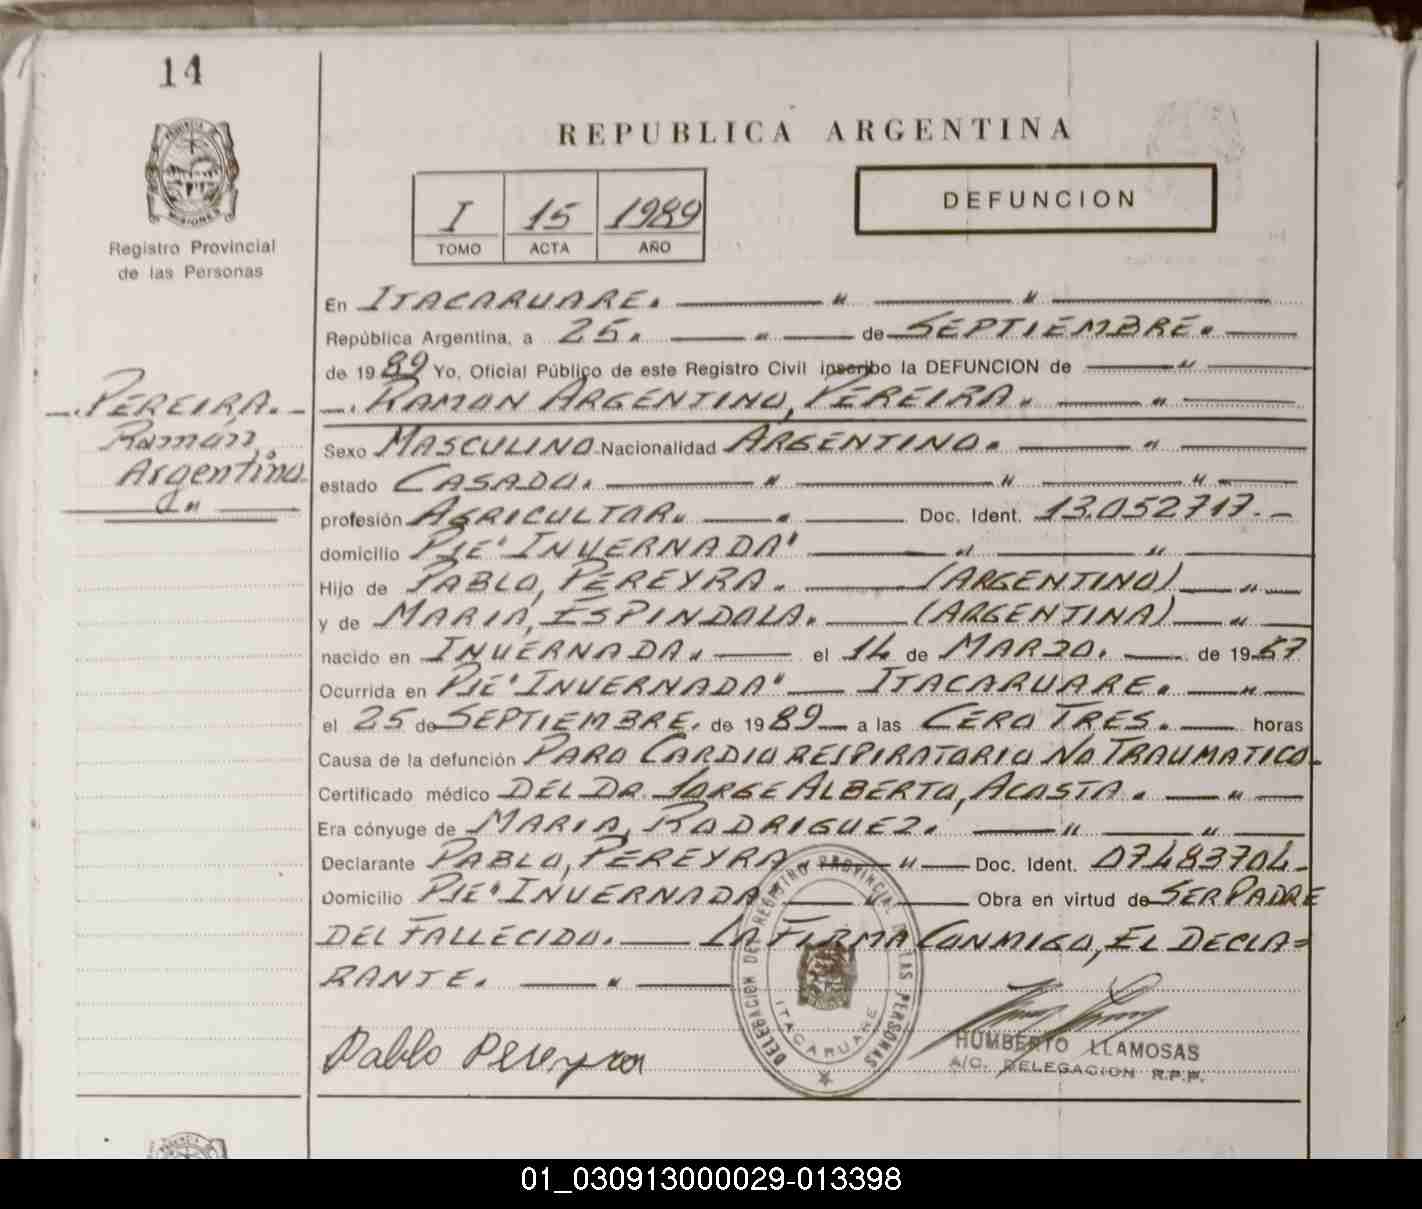 14
PROVINCIA DE MISIONES
Registro Provincial
de las Personas
REPUBLICA ARGENTINA
I 15 1989
TOMO ACTA AÑO
DEFUNCION
En ITACARUARE. " "
República Argentina, a 25. " de SEPTIEMBRE.
de 1989 Yo, Oficial Público de este Registro Civil inscribo la DEFUNCION de "
PEREIRA.
Ramón,
Argentino.
RAMON ARGENTINO, PEREIRA. "
Sexo MASCULINO. Nacionalidad ARGENTINO. "
estado CASADO. " " "
profesión AGRICULTOR. " Doc. Ident. 13.052717.-
domicilio PJE "INVERNADA" " "
Hijo de PABLO, PEREYRA. (ARGENTINO) "
y de MARIA, ESPINDOLA. (ARGENTINA) "
nacido en INVERNADA. el 14 de MARZO. de 1967
Ocurrida en PJE "INVERNADA" ITACARUARE. "
el 25 de SEPTIEMBRE. de 1989 a las CERO TRES. horas
Causa de la defunción PARO CARDIO RESPIRATORIO NO TRAUMATICO.
Certificado médico DEL DR. JORGE ALBERTO, ACOSTA. "
Era cónyuge de MARIA, RODRIGUEZ. " "
Declarante PABLO, PEREYRA. " Doc. Ident. 07483704-
Domicilio PJE "INVERNADA " Obra en virtud de SER PADRE
DEL FALLECIDO. LA FIRMA CONMIGO, EL DECLA=
RANTE. "
Pablo Pereyra
DELEGACION DE REGISTRO PROVINCIAL DE LAS PERSONAS
ITACARUARE
HUMBERTO LLAMOSAS
A/C. DELEGACION R.P.P.
01_030913000029-013398